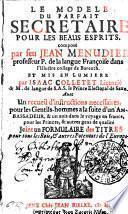 LE MODELE
DU PARFAIT
SECRETAIRE
POUR LES BEAUX ESPRITS.
composé
par feu JEAN MENUDIER
professeur P. de la langue Françoise dans
l'illustre college de
ET MIS EN LUMIERE
par ISAAC COLLETET Licentié
de M. de langue de S.A.S. le Prince
Avec
Un recueil d'instructions necessaires,
pour les Gentils-hommes à la suite d'un AM-
BASSADEUR, & un autre dans le voyage en france,
pour les Princes, & autres gens de qualité
Joint un FORMULAIRE des TITRES
pour tous les
JEAN BIELKE